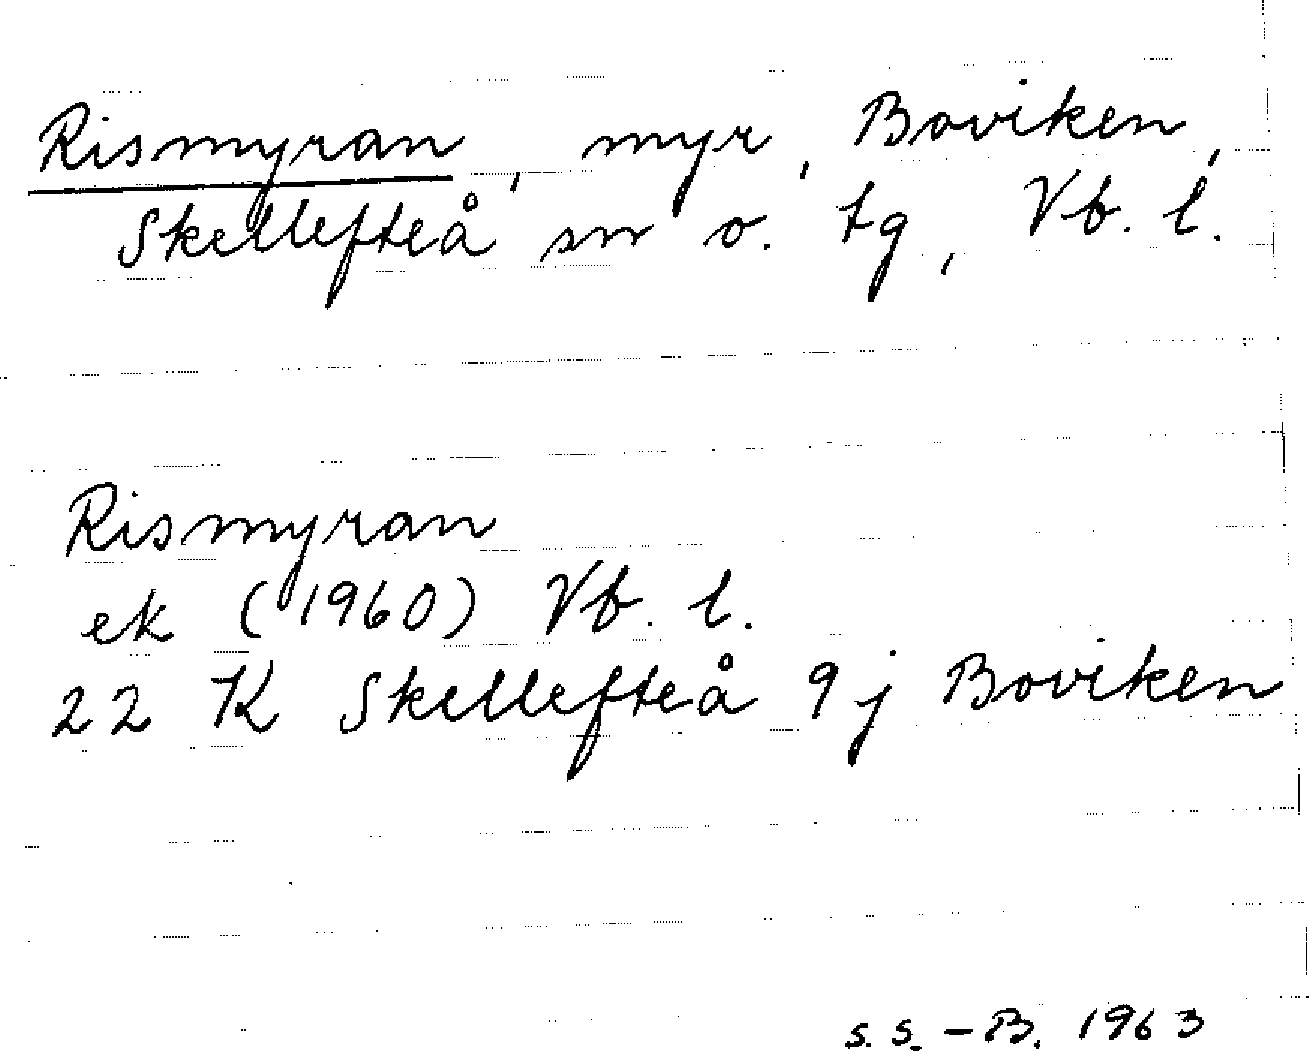 Rismyran, myr, Boviken,
Skellefteå sn o. tg, Vb. l.
Rismyran
ek (1960) Vb. l.
22 K Skellefteå 9j Boviken
S. S. – B. 1963